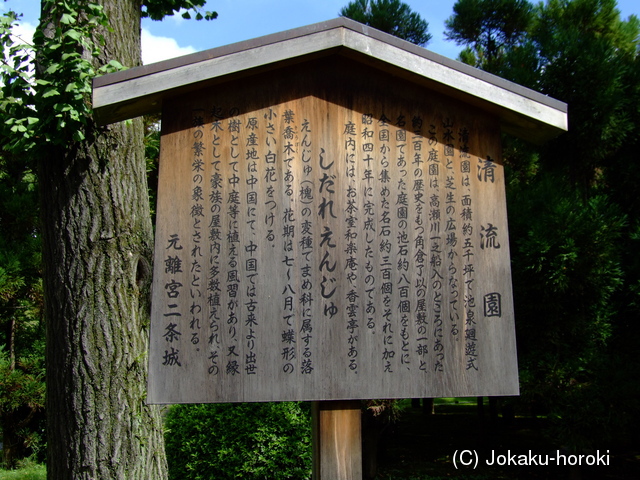 清流園
清流園は、面積約五千坪で池泉廻遊式
山水園と、芝生の広場からなつている。
この庭園は、高瀬川一之船入のところにあった
約三百年の歴史をもつ角倉了以の屋敷の一部と
名園であった庭園の池石約八百個をもとに、
全国から集めた名石約三百個をそれに加え
昭和四十年に完成したものである。
庭内には、お茶室和楽庵や、香雲亭がある。
しだれえんじゅ
えんじゅ(槐)の変種でまめ科に属する落
葉喬木である。花期は七～八月で蝶形の
小さい白花をつける。
原産地は中国にて、中国では古来より出世
の樹として中庭等に植える風習があり、又縁
起木として豪族の屋敷内に多数植えられ、その
一族の繁栄の象徴とされたといわれる。
元離宮二条城
(C) Jokaku-horoki